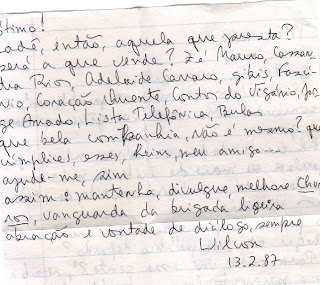 ótimo!
cadê, então, aquela que presta?
será a que vende? Zé Mauro, Cassan
dra Rios, Adelaide Carraro, gibis, Fascí-
nio, Coração Ardente, Contos do Vigário, Jor
ge Amado, Lista Telefônica, Bulas
que bela companhia, não é mesmo? que
cúmplices, esses, heim, meu amigo...
ajude-me, sim
assim: mantenha, divulgue, melhore
vanguarda da brigada ligeira
abração e vontade de diálogo, sempre
Wilson
13.2.87